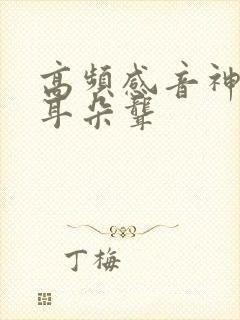 高頻感音神
耳朵聾
丁梅